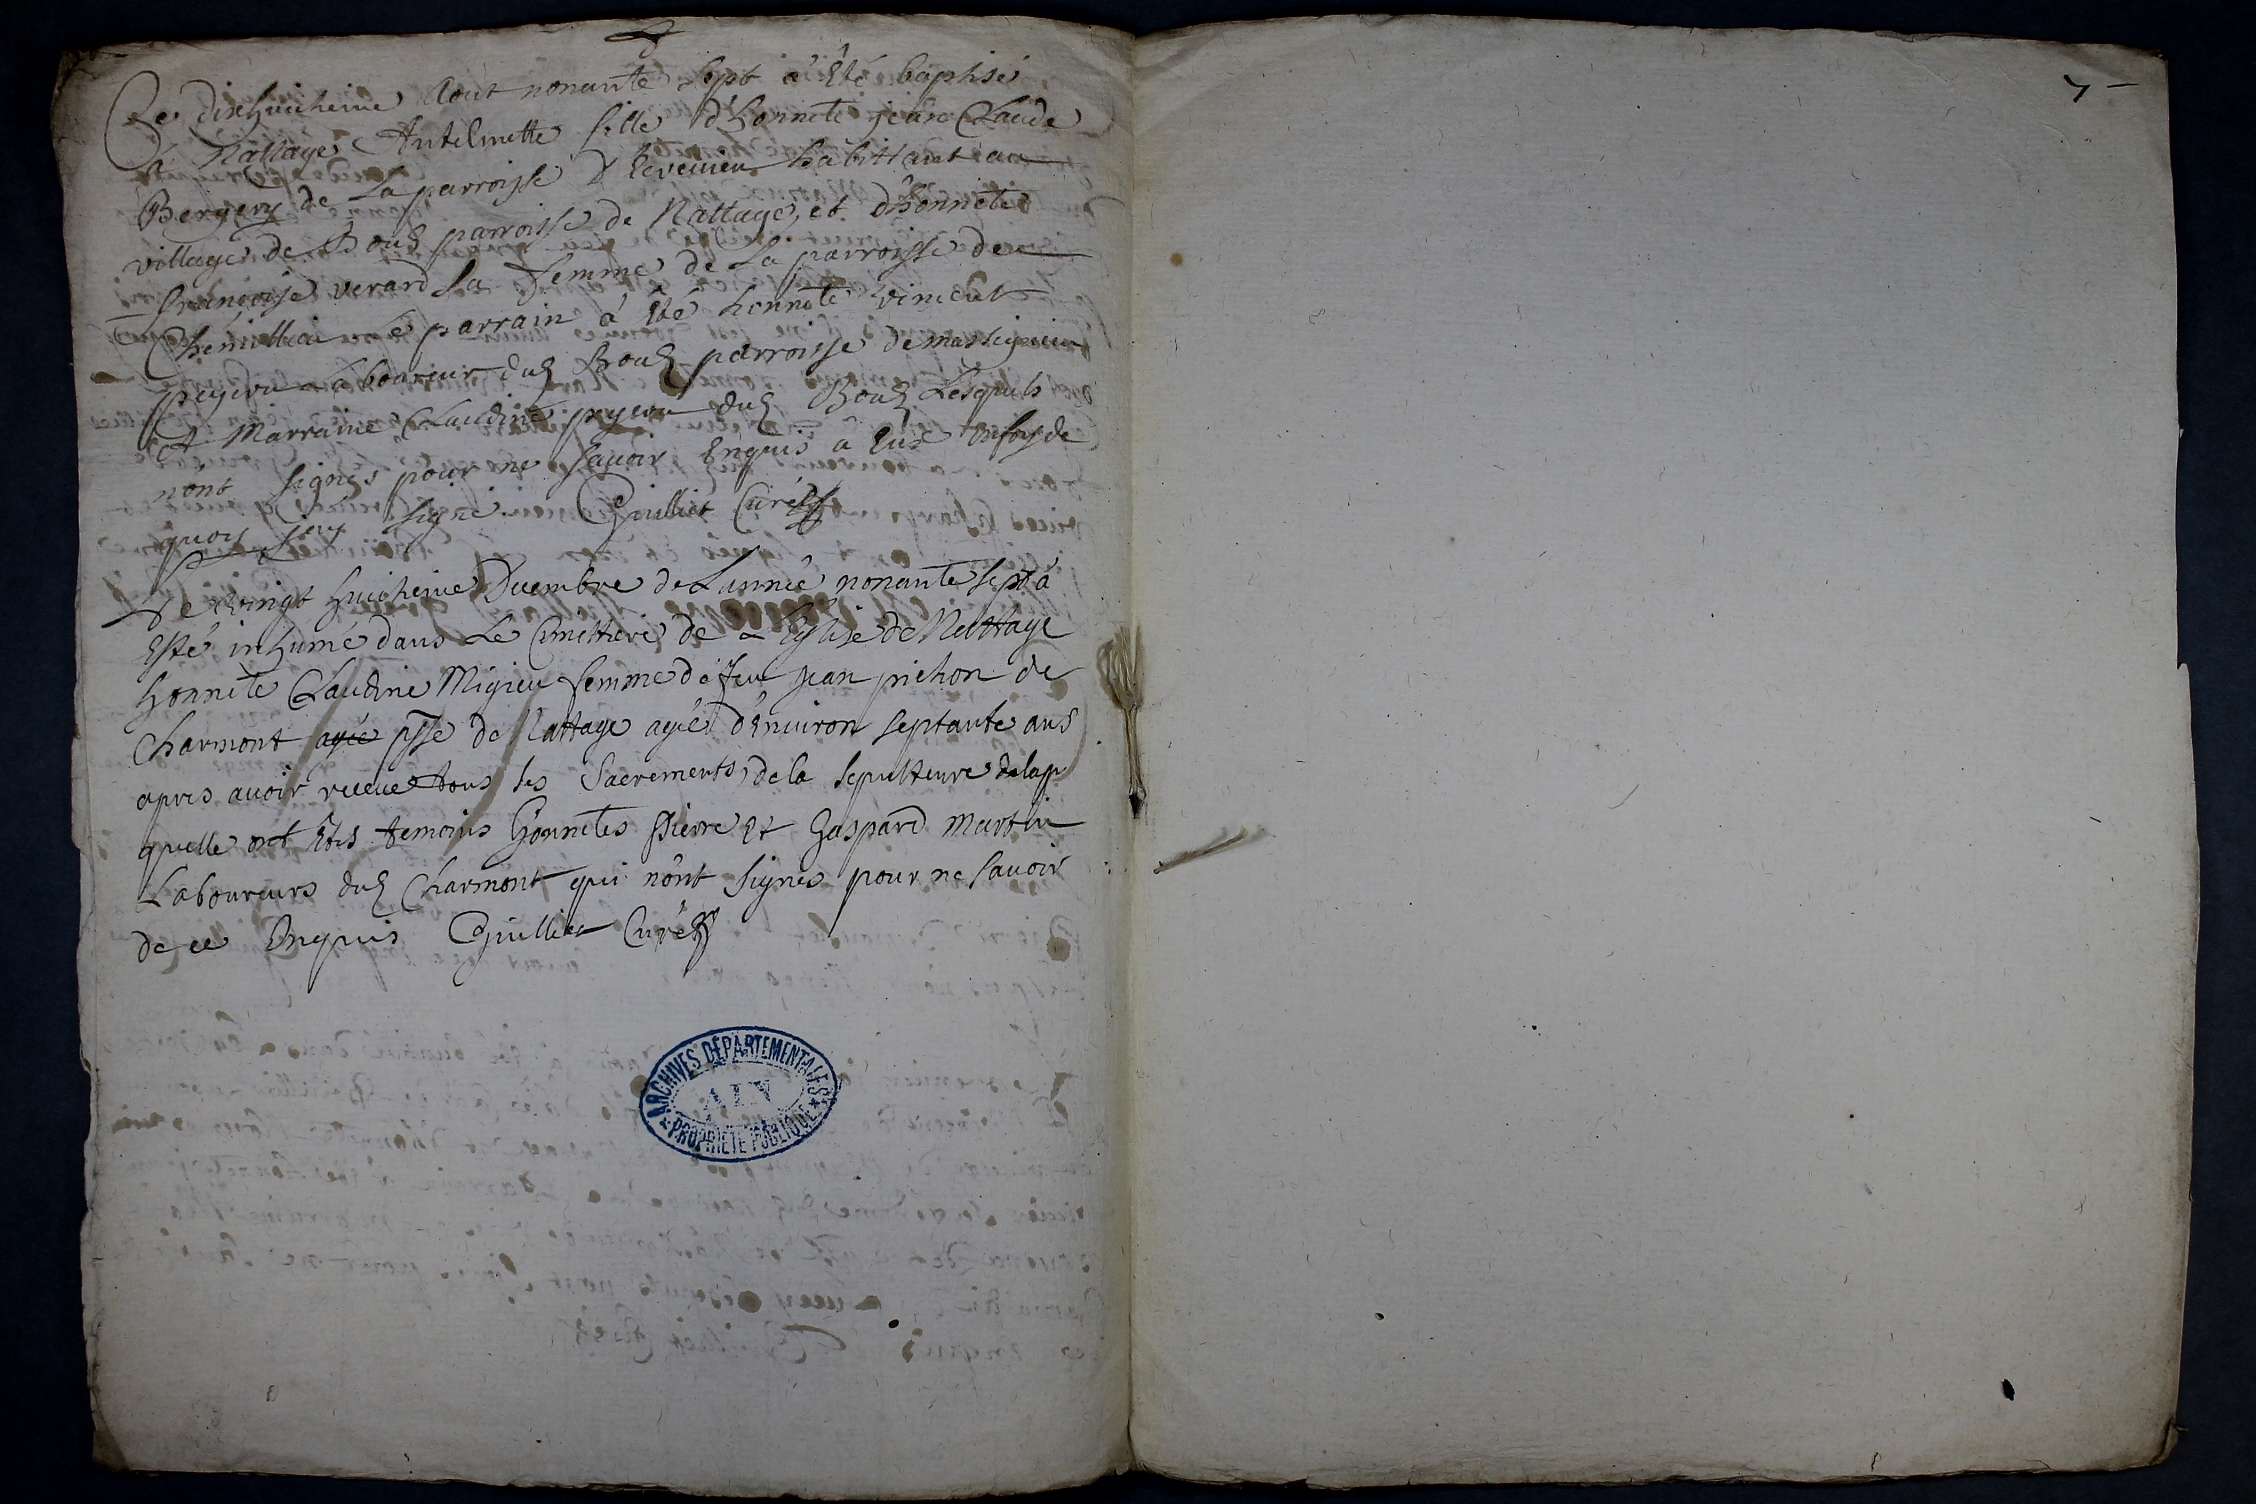 Ce dixhuictieme Aout nonante sept a Eté baptisé
à Nattage Antelmette fille d'honnete jean Claude
Bergery de La parroisse d' habittant au
village de Bouz parroisse de Nattage, et d'honnete
françoise verard Sa femme de La parroisse de
Chemillieu Le parrain à Eté honnete vincent
peysson Laboureur dud Bouz parroisse de massignieu
Et Marraine Claudine dud Bouz Lesquels
nont signés pour ne sauoir Enquis â Eux En foy de
quoy jay signé. Guilliet Curé
Le vingt huictieme Decembre de Lannée nonante sept à
Esté inhumé dans Le Cimettiere de L'Eglise de Nattage
honnète Claudine Migieu femme de feu jean pichon de
Charmont agée psse de Nattage agée d'Enuiron septante ans
apres auoir receue tous les Sacrements, de la sepulteure de la
quelle ont Etés temoins honnetes Pierre Et Gaspard Martin
Laboureurs dud Charmont qui nônt signés pour ne sauoir
de ce Enquis Guilliet Curé
ARCHIVES DÉPARTEMENTALES
AIN
PROPRIÉTÉ PUBLIQUE
7